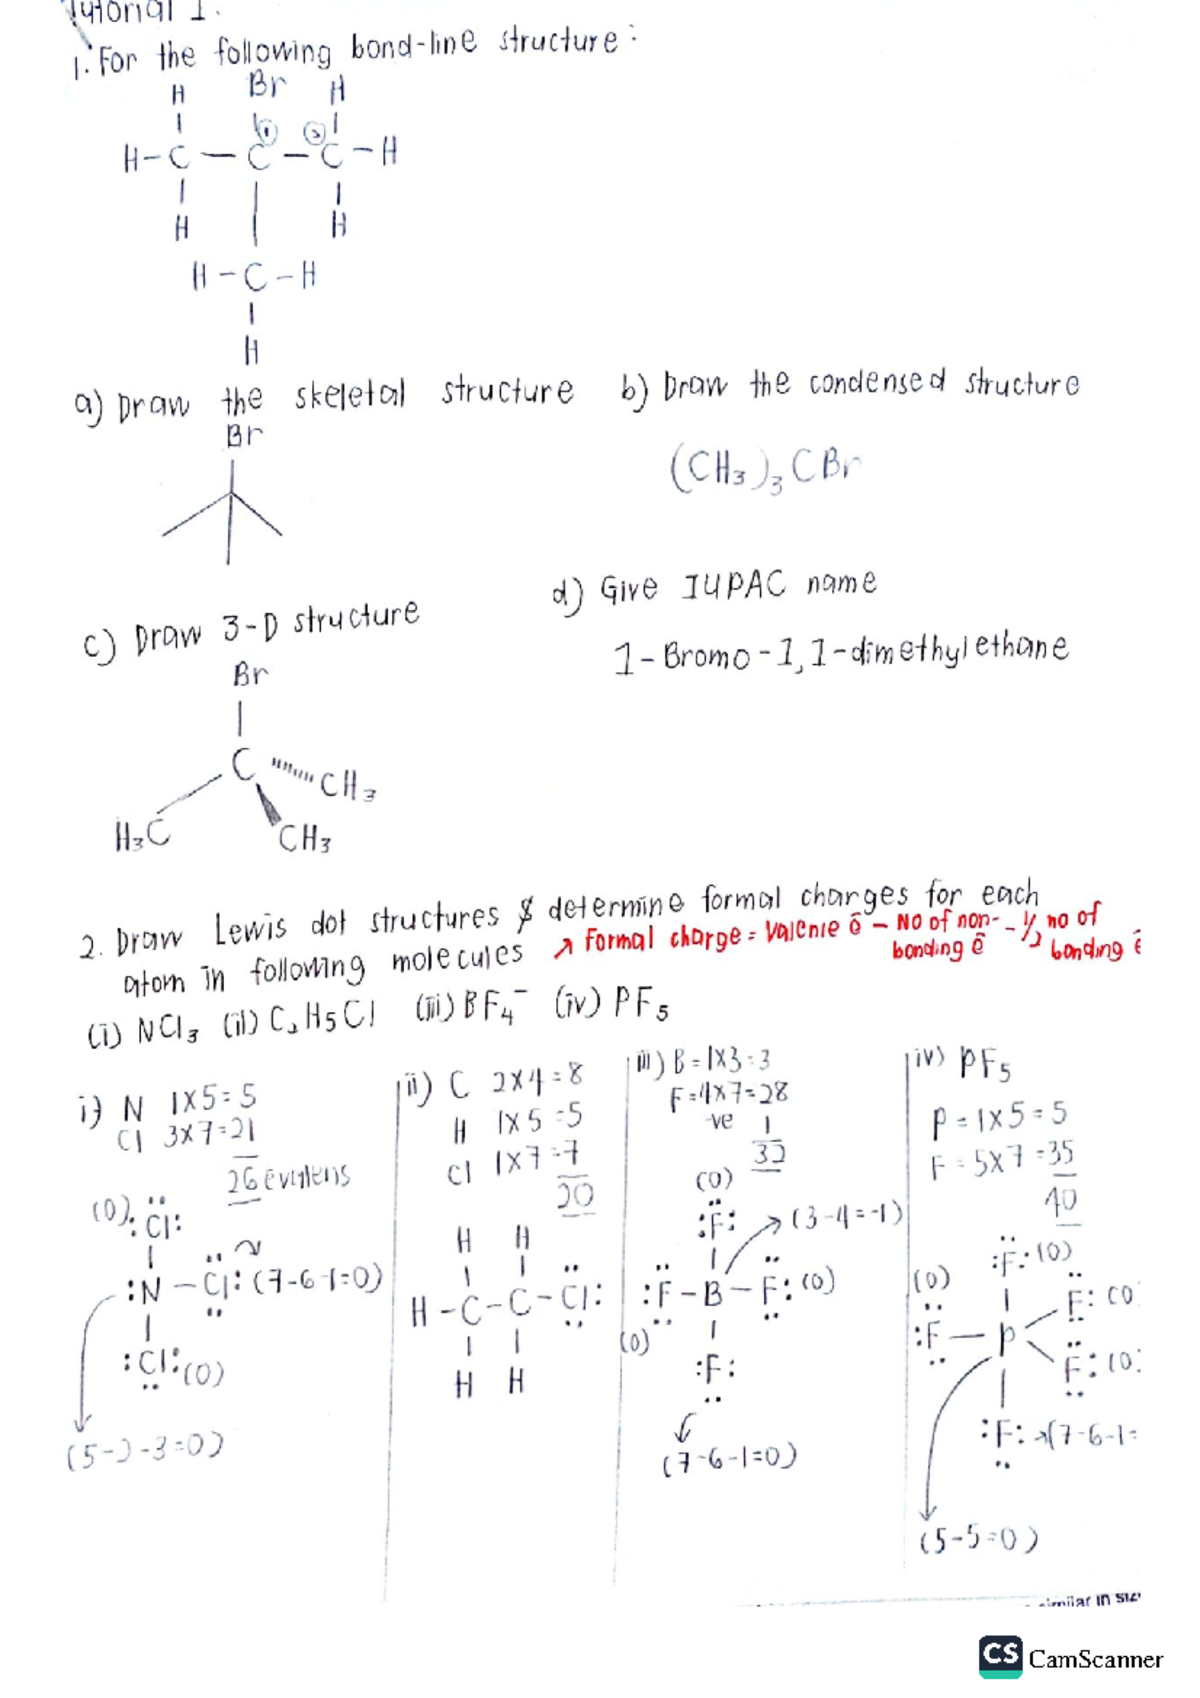 Tutorial 1.
1. For the following bond-line structure:
H Br H
① ②
H-C-C-C-H
H H
H-C-H
H
a) Draw the skeletal structure b) Draw the condensed structure
Br
(CH3)3CBr
c) Draw 3-D structure d) Give IUPAC name
1-Bromo-1,1-dimethylethane
Br
C CH3
H3C CH3
2. Draw Lewis dot structures & determine formal charges for each
atom in following molecules ↗ Formal charge = Valence ē - No of non-bonding ē - 1/2 no of bonding ē
(i) NCl3 (ii) C2H5Cl (iii) BF4⁻ (iv) PF5
i) N 1x5=5
Cl 3x7=21
26
(0) :Cl:
:N-Cl: (7-6-1=0)
:Cl: (0)
(5-2-3=0)
ii) C 2x4=8
H 1x5=5
Cl 1x7=7
20
H H
H-C-C-Cl:
H H
iii) B=1x3=3
F=4x7=28
-ve 1
32
(0)
:F: → (3-4=-1)
:F-B-F: (0)
(0)
:F:
(7-6-1=0)
iv) PF5
P=1x5=5
F=5x7=35
40
:F: (0)
(0) F: (0
:F-P
F: (0)
:F: → (7-6-1=
(5-5=0)
similar in siz
CS CamScanner